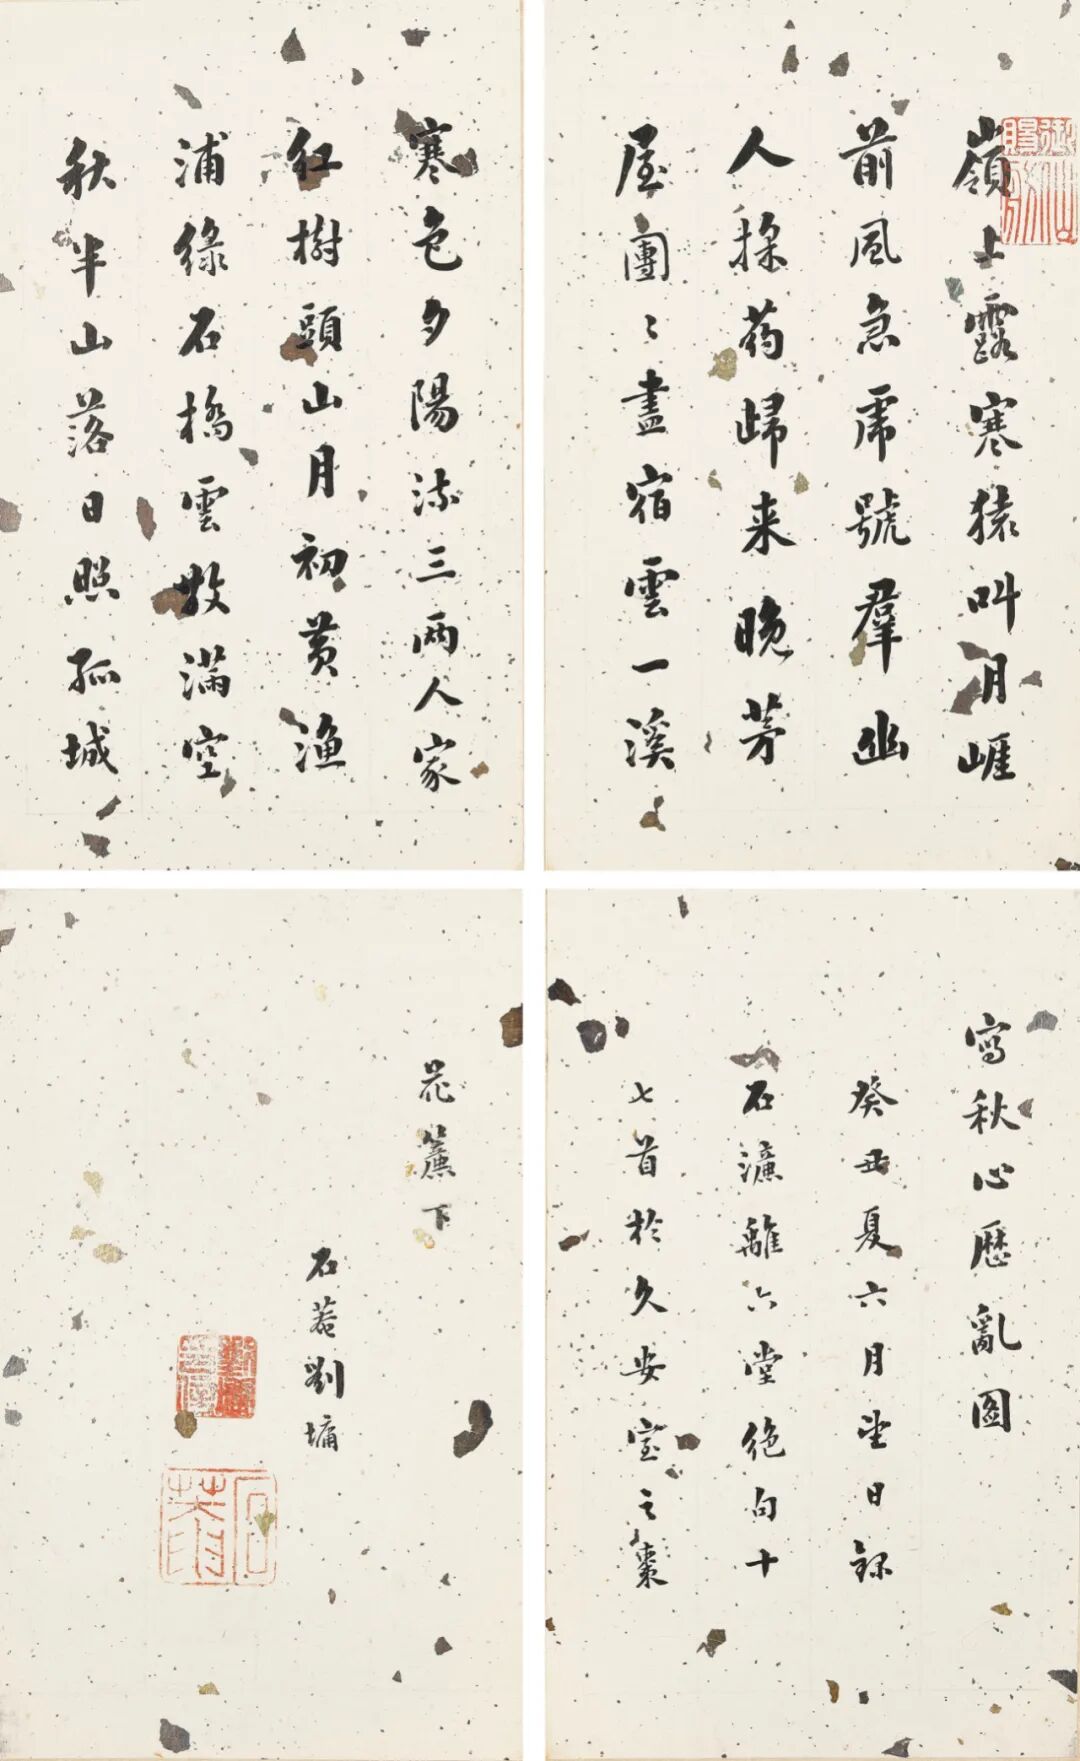 御賜仙舫
嶺上露寒猿叫月崖
前風急虎號羣幽
人採药歸来晚茅
屋團〻盡宿雲一溪
寒色夕陽流三兩人家
紅樹頭山月初黄漁
浦綠石橋雲散滿空
秋半山落日照孤城
寫秋心歷亂圖
癸丑夏六月望日録
石濂離六堂絶句十
七首於久安室之棗
花簾下
石菴劉墉